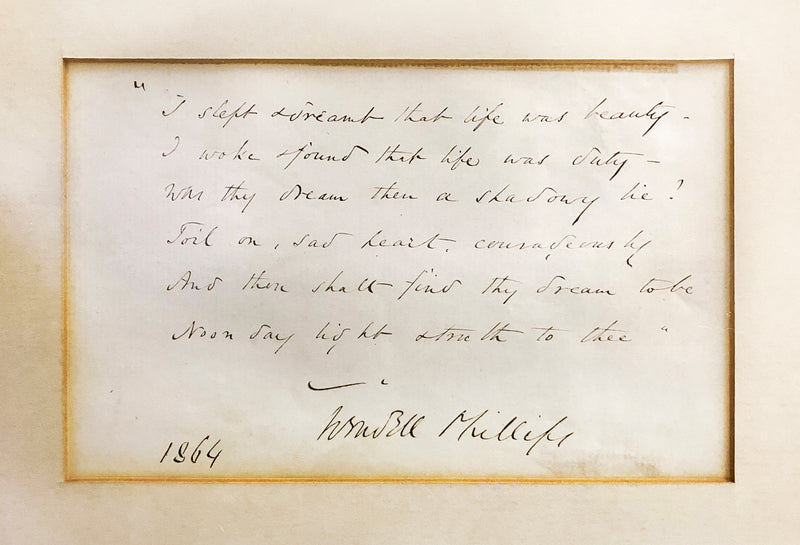 " I slept & dreamt that life was beauty -
I woke & found that life was duty -
Was thy dream then a shadowy lie?
Toil on, sad heart, courageously
And thou shalt find thy dream to be
Noon day light & truth to thee "
Wendell Phillips
1864